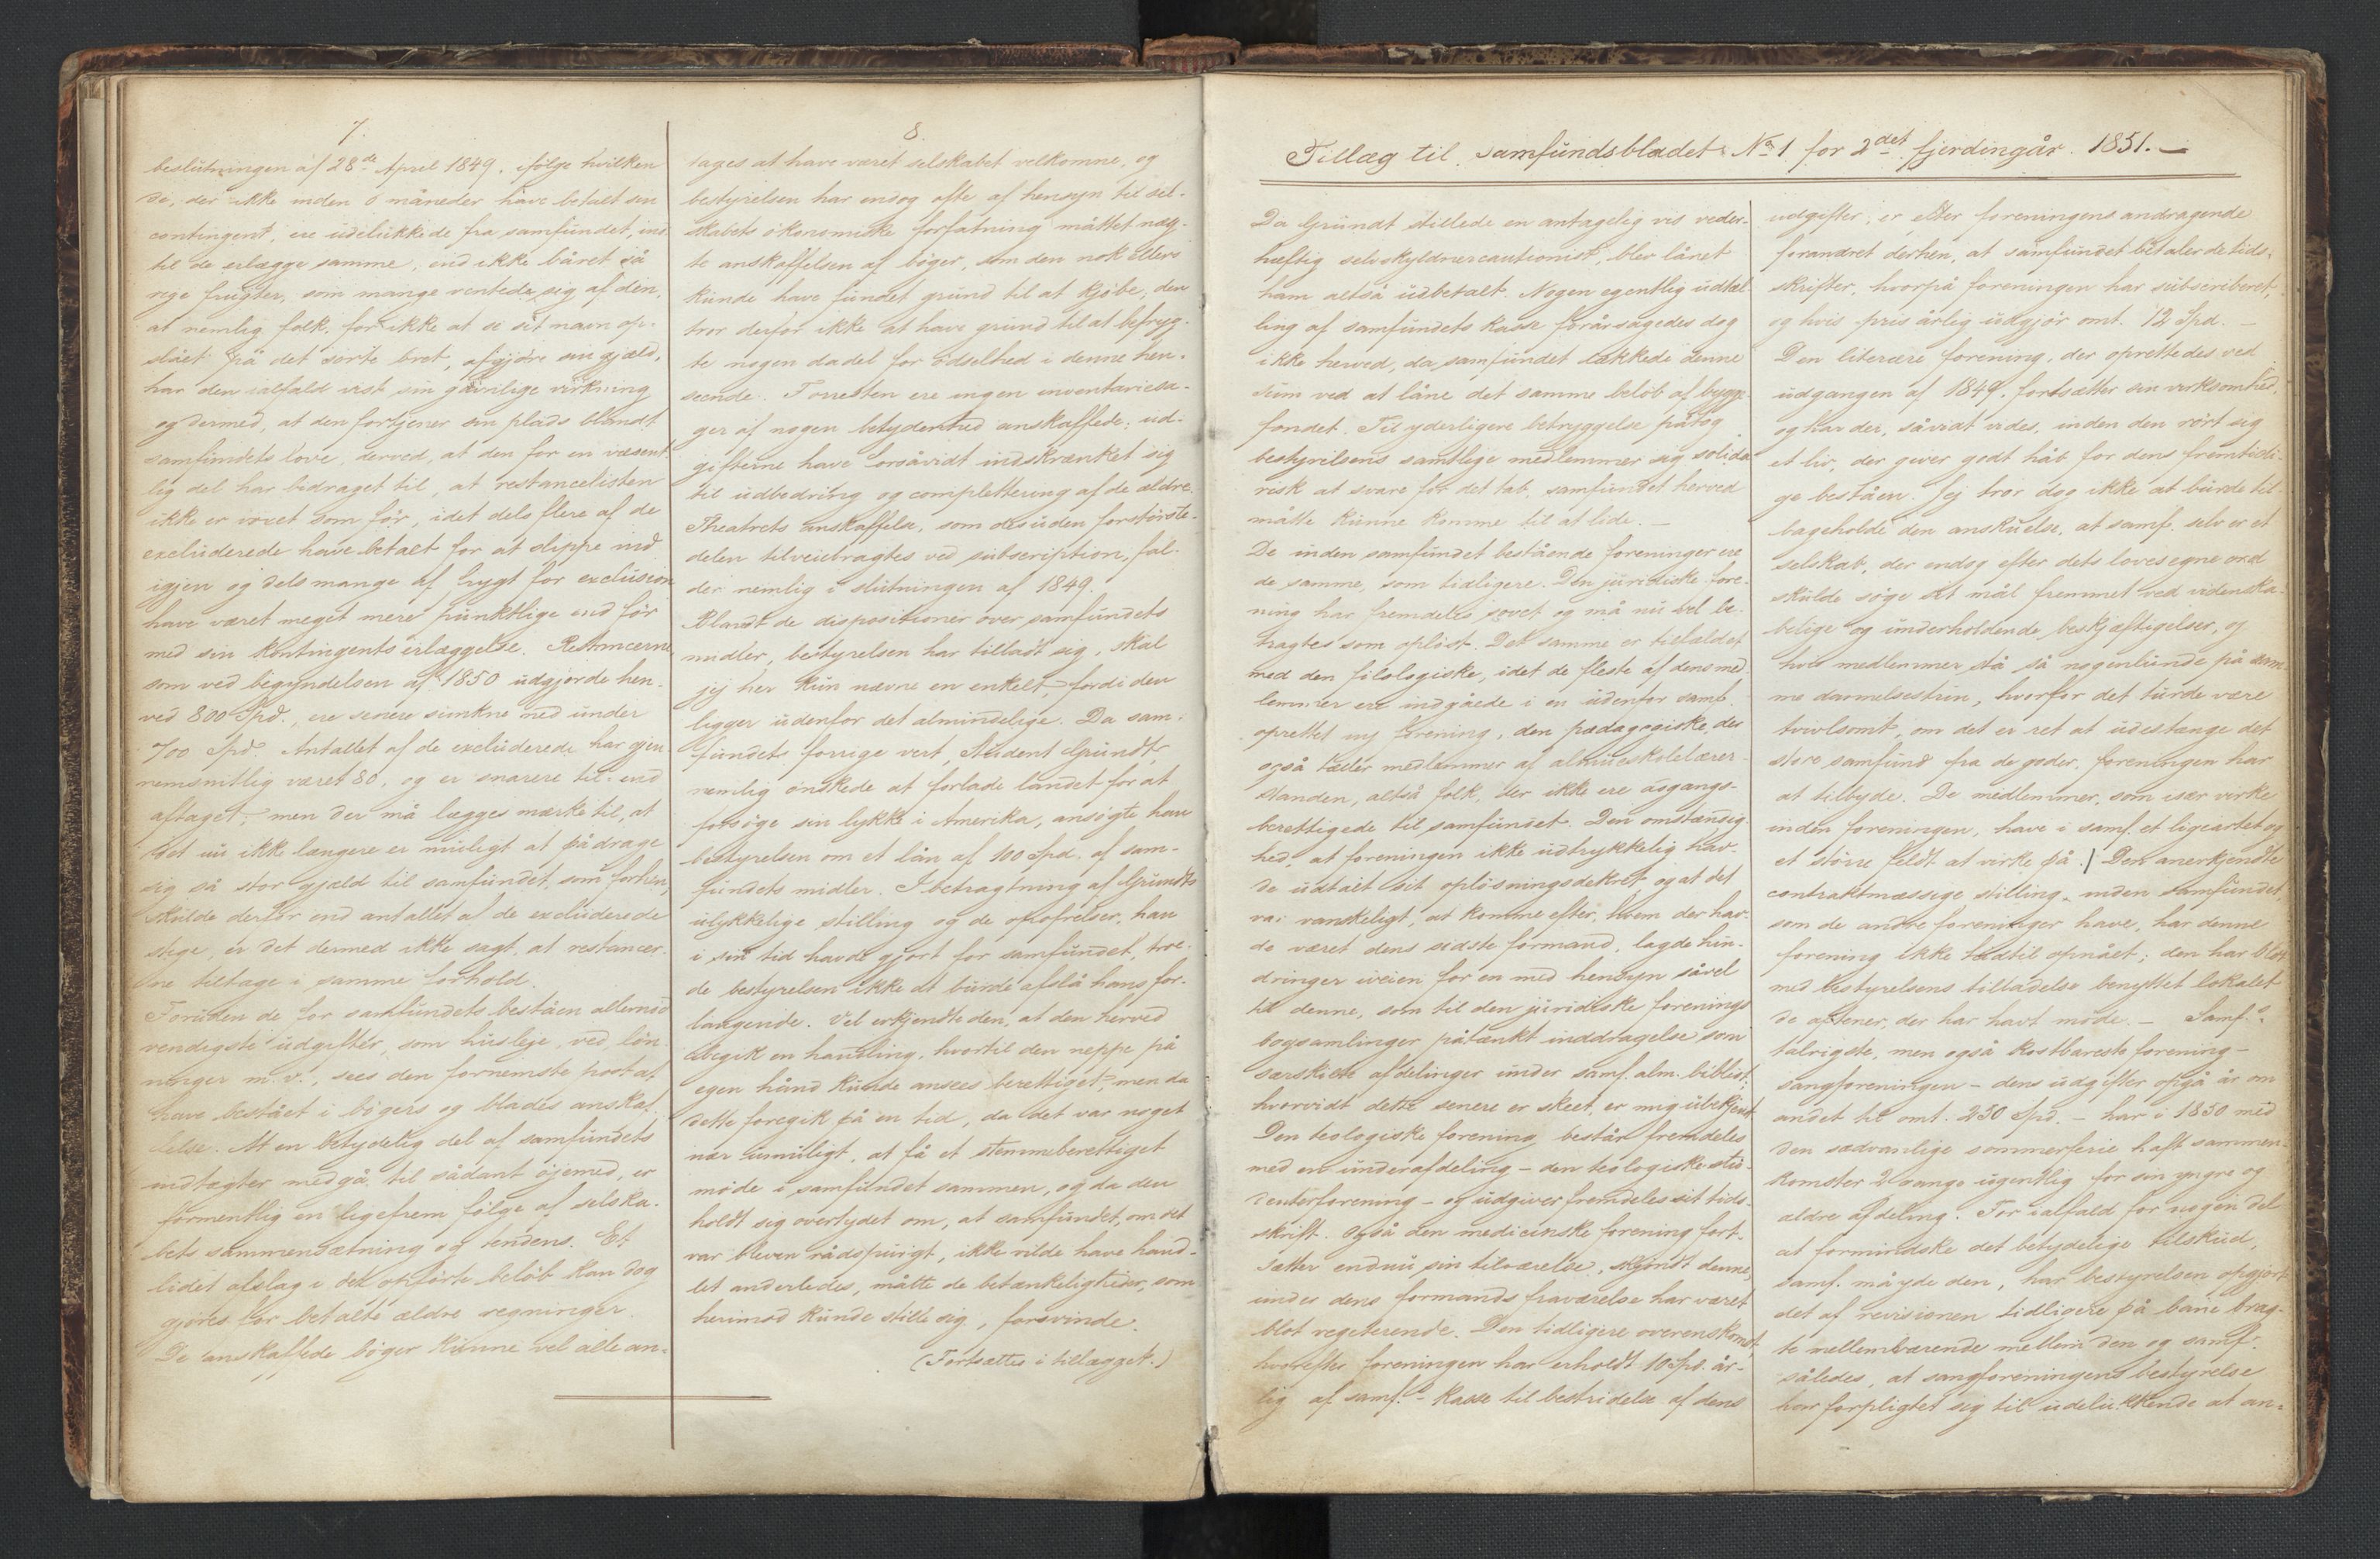 7.
beslutningen af 28de April 1849, ifølge hvilken
de, der ikke inden 6 måneder have betalt sin
contingent, ere udelukkede fra samfundet, ind
til de erlægge samme, end ikke båret så
rige frugter, som mange ventede sig af den,
at nemlig folk, for ikke at se sit navn op-
slået på det sorte bret, afgjøre sin gjæld,
har den ialfald vist sin gavnlige virkning
og dermed, at den fortjener sin plads blandt
samfundets love, derved, at den for en væsent
lig del har bidraget til, at restancelisten
ikke er voxet som før, idet dels flere af de
excluderede have betalt for at slippe ind
igjen og dels mange af frygt for exclusion
have været meget mere punktlige end før
med sin kontingents erlæggelse. Restancerne
som ved begyndelsen af 1850 udgjorde hen-
ved 800 Spd., ere senere sunkne ned under
700 Spd. Antallet af de excluderede har gjen
nemsnitlig været 80, og er snarere til- end
aftaget; men der må lægges mærke til, at
det nu ikke længere er muligt at pådrage
sig så stor gjæld til samfundet, som forhen,
skulde derfor end antallet af de excluderede
stige, er det dermed ikke sagt, at restancer-
ne tiltage i samme forhold.
Foruden de for samfundets beståen allernød
vendigste udgifter, som husleje, ved, løn-
ninger m. v., sees den fornemste post at
have bestået i bøgers og blades anskaf
felse. At en betydelig del af samfundets
indtægter medgå til sådant øjemed, er
formentlig en ligefrem følge af selska-
bets sammensætning og tendens. Et
lidet afslag i det opførte beløb kan dog
gjøres for betalte ældre regninger.
De anskaffede bøger kunne vel alle an-
8.
tages at have været selskabet velkomne, og
bestyrelsen har endog ofte af hensyn til sel-
skabets økonomiske forfatning måttet næg-
te anskaffelsen af bøger, som den nok ellers
kunde have fundet grund til at kjøbe; den
tror derfor ikke at have grund til at befryg-
te nogen dadel for ødselhed i denne hen-
seende. Forresten ere ingen inventariesa-
ger af nogen betydenhed anskaffede; ud-
gifterne have forsåvidt indskrænket sig
til udbedring og complettering af de ældre.
Theatrets anskaffelse, som desuden forstørste-
delen tilveiebragtes ved subscription, fal-
der nemlig i slutningen af 1849.
Blandt de dispositioner over samfundets
midler, bestyrelsen har tilladt sig, skal
jej her kun nævne en enkelt, fordi den
ligger udenfor det almindelige. Da sam-
fundets forrige vert, Student Grundt,
nemlig ønskede at forlade landet for at
forsøge sin lykke i Amerika, ansøgte han
bestyrelsen om et lån af 100 Spd. af sam-
fundets midler. I betragtning af Grundts
ulykkelige stilling og de opofrelser, han
i sin tid havde gjort for samfundet, tro-
de bestyrelsen ikke at burde afslå hans for-
langende. Vel erkjendte den, at den herved
begik en handling, hvortil den neppe på
egen hånd kunde ansees berettiget; men da
dette foregik på en tid, da det var noget
nær umuligt, at få et stemmeberettiget
møde i samfundet sammen, og da den
holdt sig overtydet om, at samfundet, om det
var bleven rådspurgt, ikke vilde have hand-
let anderledes, måtte de betænkeligheder, som
herimod kunde stille sig, forsvinde.
(Fortsættes i tillægget.)
Tillæg til Samfundsbladet No 1 for 2det fjerdingår 1851.
Da Grundt stillede en antagelig vis veder-
hæftig selvskyldnercautionist, blev lånet
ham altså udbetalt. Nogen egentlig udtæl-
ling af samfundets kasse forårsagedes dog
ikke herved, da samfundet dækkede denne
sum ved at låne det samme beløb af bygge-
fondet. Til yderligere betryggelse påtog
bestyrelsens samtlige medlemmer sig solida
risk at svare for det tab, samfundet herved
måtte kunne komme til at lide. —
De inden samfundet bestående foreninger ere
de samme, som tidligere. Den juridiske fore-
ning har fremdeles sovet og må nu vel be-
tragtes som opløst. Det samme er tilfældet
med den filologiske, idet de fleste af dens med
lemmer ere indgåede i en udenfor samf.
oprettet ny forening, den pædagogiske, der
også tæller medlemmer af almueskolelærer-
standen, altså folk, der ikke ere adgangs-
berettigede til samfundet. Den omstændig-
hed, at foreningen ikke udtrykkelig hav-
de udtalt sit opløsningsdekret, og at det
var vanskeligt, at komme efter, hvem der hav-
de været dens sidste formand, lagde hin-
dringer iveien for en med hensyn såvel
til denne, som til den juridiske forenings
bogsamlinger påtænkt inddragelse som
særskilte afdelinger under samf. alm. bibliot;
hvorvidt dette senere er skeet, er mig ubekjendt
Den teologiske forening består fremdeles
med en underafdeling – den teologiske stu-
denterforening – og udgiver fremdeles sit tids-
skrift. Også den medicinske forening fort-
sætter endnu sin tilværelse, skjøndt denne,
under dens formands fraværelse har været
blot vegeterende. Den tidligere overenskomst,
hvorefter foreningen har erholdt 10 Spd. år-
lig af samf.s kasse til bestridelse af dens
udgifter, er efter foreningens andragende
forandret derhen, at samfundet betaler de tids-
skrifter, hvorpå foreningen har subscriberet,
og hvis pris årlig udgjør omt. 12 Spd. —
Den literære forening, der oprettedes ved
udgangen af 1849, fortsætter sin virksomhed,
og har der, såvidt vides, inden den rørt sig
et liv, der giver godt håb for dens fremtidi-
ge beståen. Jej tror dog ikke at burde til-
bageholde den anskuelse, at samf. selv er et
selskab, der endog efter dets loves egne ord
skulde søge sit mål fremmet ved videnska-
belige og underholdende beskjæftigelser, og
hvis medlemmer stå så nogenlunde på sam-
me dannelsestrin, hvorfor det turde være
tvivlsomt, om det er ret at udestænge det
store samfund fra de goder, foreningen har
at tilbyde. De medlemmer, som især virke
inden foreningen, have i samf. et ligeartet og
et større feldt at virke på.) Den anerkjendte
contraktmæssige stilling inden samfundet,
som de andre foreninger have, har denne
forening ikke hidtil opnået; den har blot
med bestyrelsens tilladelse benyttet lokalet
de aftener, der har havt møde. — Samf.s
talrigste, men også kostbareste forening –
sangforeningen – dens udgifter opgå år om
andet til omt. 250 Spd. – har i 1850 med
den sædvanlige sommerferie haft sammen-
komster 2 gange ugentlig for sin yngre og
ældre afdeling. For ialfald for nogen del
at formindske det betydelige tilskud,
samf. må yde den, har bestyrelsen opgjort
det af revisionen tidligere på bane brag-
te mellemværende mellem den og samf.
således, at sangforeningens bestyrelse
har forpligtet sig til udelukkende at an-